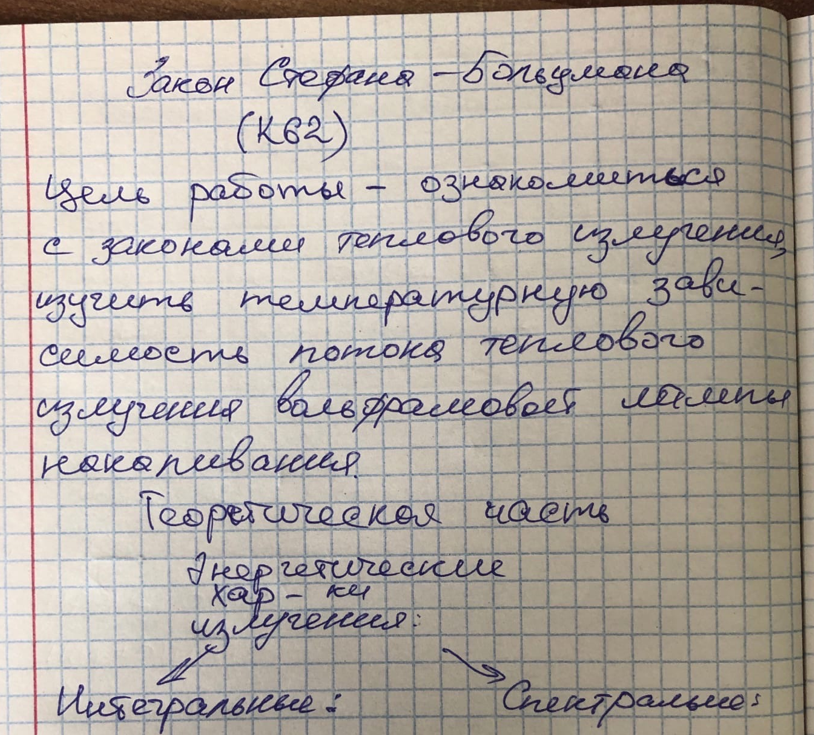 Закон Стефана – Больцмана
(К62)
Цель работы – ознакомиться
с законами теплового излучения,
изучить температурную зави-
симость потока теплового
излучения вольфрамовой лампы
накаливания.
Теоретическая часть
Энергетические
хар-ки
излучения:
Интегральные: Спектральные: